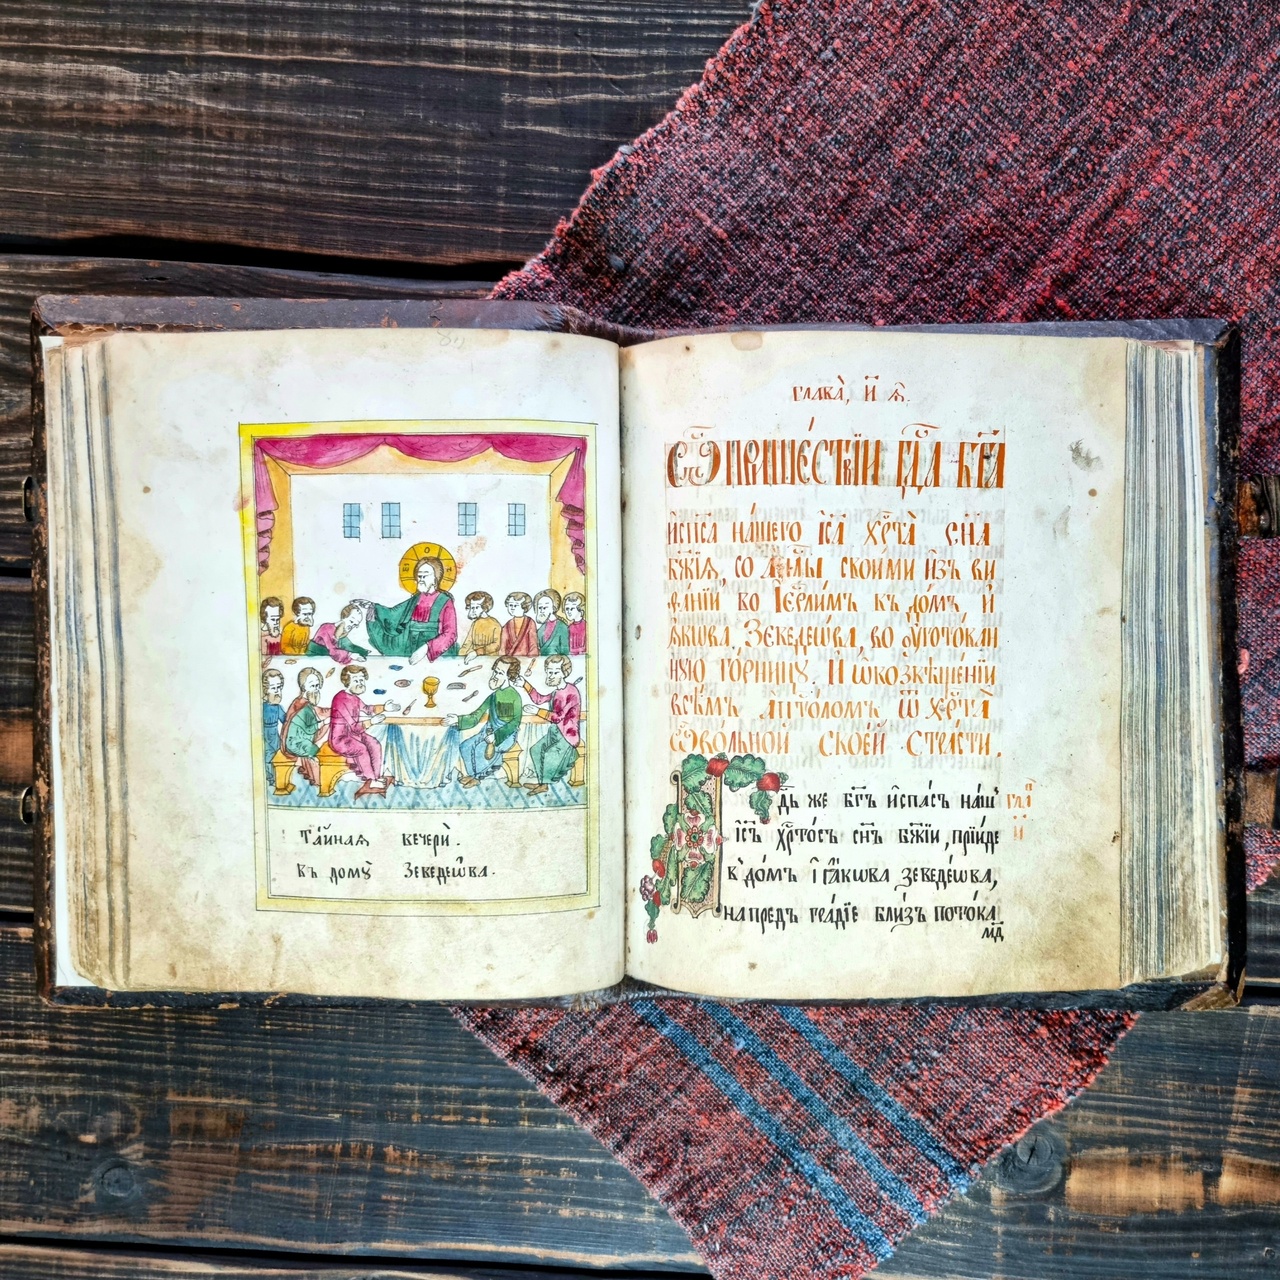 Та́йная вечерѝ.
въ домꙋ̀ Зеведеѡ́ва.
глава̀, и҃ ѧ҃.
Ѡ прише́ствїи гдⷭ҇а бг҃а
и҆ спⷭ҇а на́шего і҆са хрⷭ҇та̀ сна
бж҃їѧ, со а҆пⷭ҇лы своими и҆зъ ви
ѳа́нїи во І҆ерⷭ҇лимъ къ до́мъ и҆
ꙗ҆́кѡва, Зеведеѡ́ва, во ᲂу҆гото́ван
ную го́рницꙋ. И ѡ҆ возвѣще́нїи
всѣ́мъ а҆пⷭ҇толомъ ѿ хрⷭ҇та̀
ѡ҆ во́льной свое́й стра́сти.
Г҃дь же бг҃ъ и҆ спа́съ на́шъ гла̀
і҆с҃ъ хрⷭ҇то́съ сн҃ъ бж҃їи, прїи́де и҃
в̾ до́мъ і҆ꙗ́кѡва зеведе́ѡва,
на предъ гра́дїе бли́зъ пото́ка
м҃д